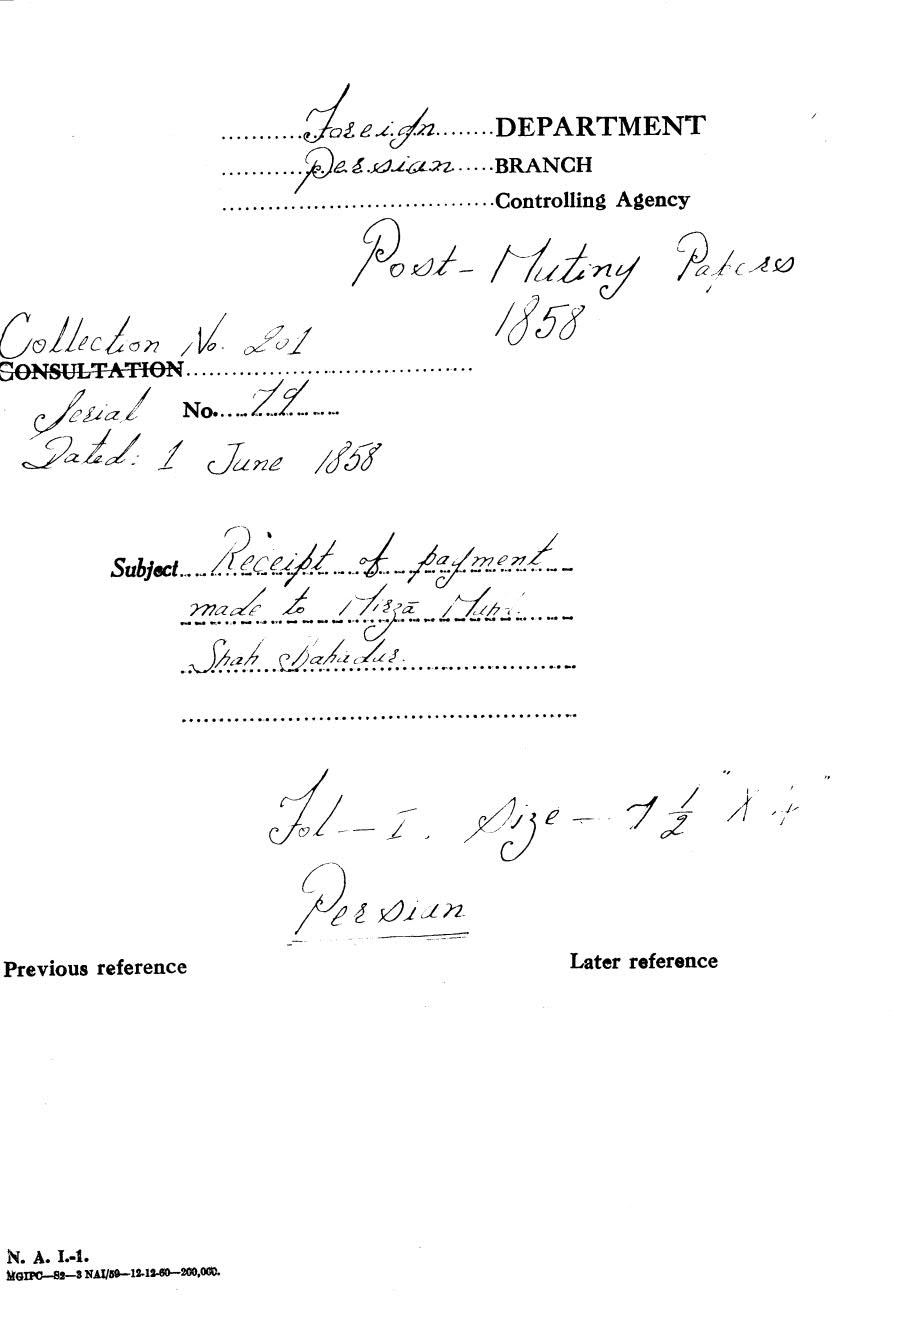 Foreign DEPARTMENT
Persian BRANCH
Controlling Agency
Post-Mutiny Papers
1858
Collection No. 201
CONSULTATION
Serial No. 79
Dated: 1 June 1858
Subject Receipt of payment
made to Mirzā
Shah Bahadur.
Fol — I. Size — 7 1/2" X 4"
Persian
Previous reference
Later reference
N. A. I.-1.
MGIPC—S2—3 NAI/59—12-12-60—200,000.